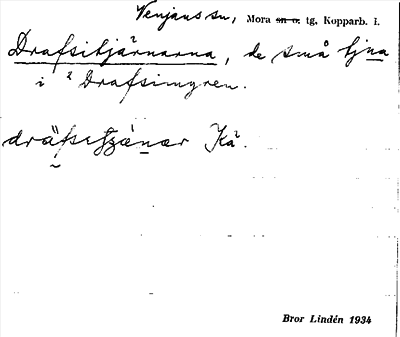 Venjans sn, Mora sn o. tg, Kopparb. i.
Drafsitjärnarna, de små tjna
i ² Drafsimyren.
Kä².
Bror Lindén 1934